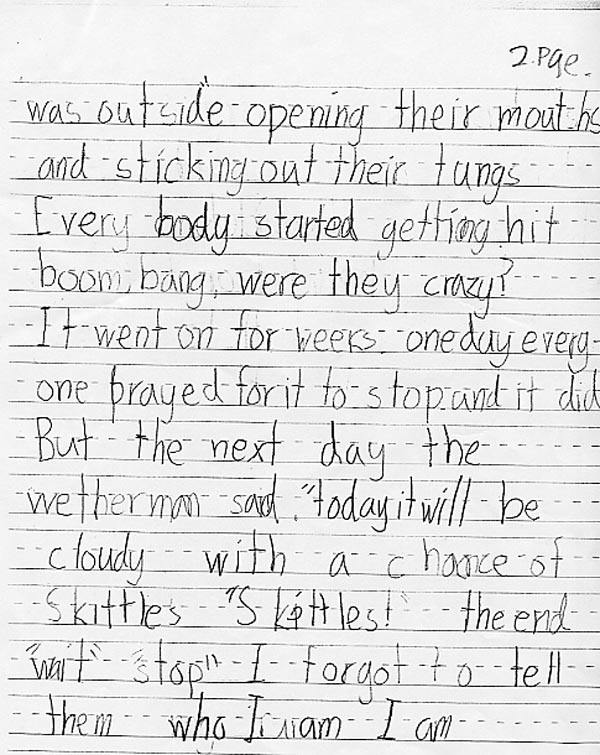 2.Pge.
was outside opening their mouths
and sticking out their tungs
Every body started getting hit
boom, bang, were they crazy?
It went on for weeks. oneday every-
one prayed for it to stop and it did
But the next day the
wetherman said. "today it will be
cloudy with a chance of
Skittles "Skittles!" the end
"wait" "stop" I forgot to tell
them who I am I am